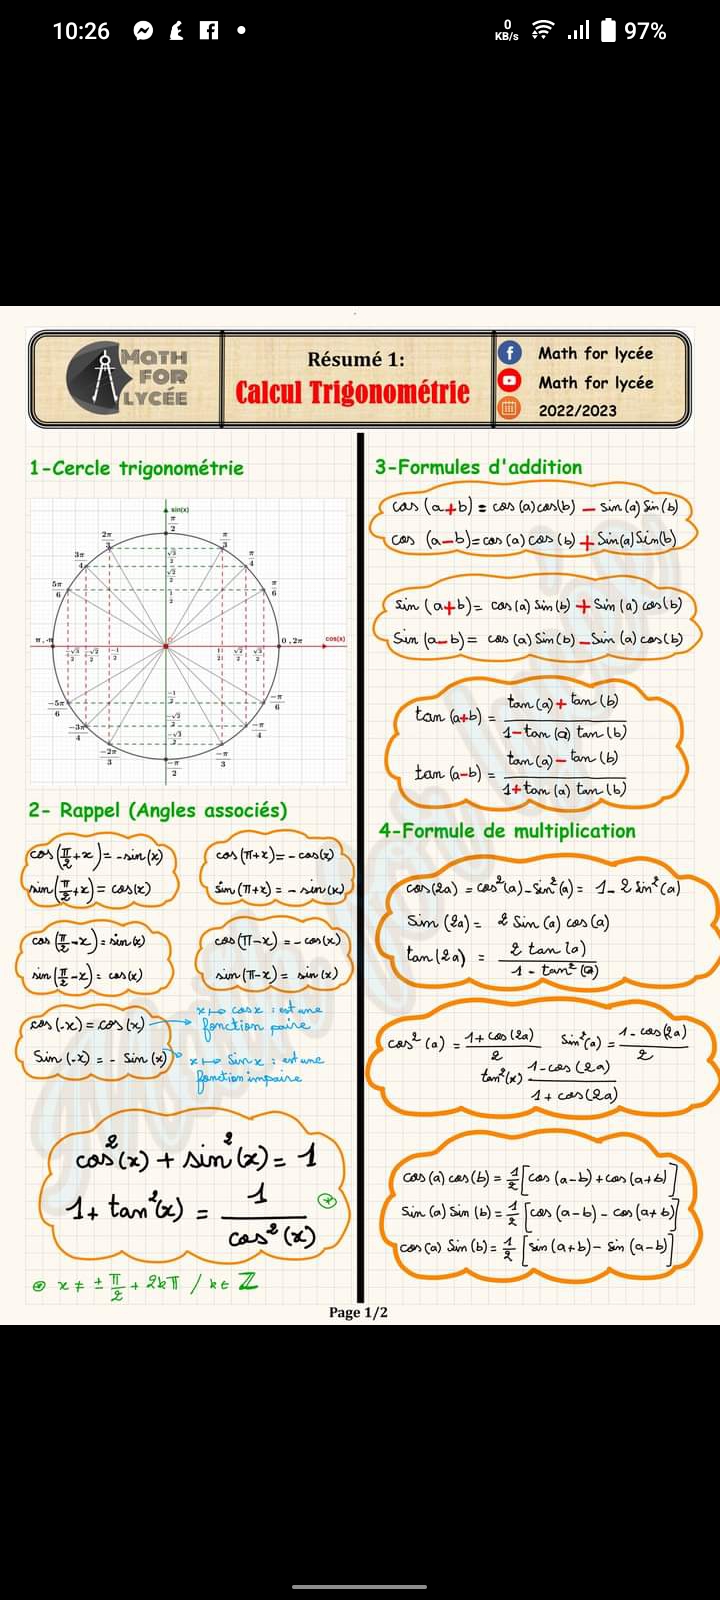 10:26
0 KB/s
97%
MATH FOR LYCÉE
Résumé 1:
Calcul Trigonométrie
Math for lycée
Math for lycée
2022/2023
1-Cercle trigonométrie
sin(x)
π/2
2π/3
π/3
3π/4
π/4
5π/6
π/6
√3/2
√2/2
1/2
π,-π
0,2π
cos(x)
-√3/2 -√2/2 -1/2 1/2 √2/2 √3/2
-1/2
-√2/2
-√3/2
-5π/6
-π/6
-3π/4
-π/4
-2π/3
-π/3
-π/2
2- Rappel (Angles associés)
cos(π/2+x)=-sin(x)
sin(π/2+x)=cos(x)
cos(π+x)=-cos(x)
sin(π+x)=-sin(x)
cos(π/2-x)=sin(x)
sin(π/2-x)=cos(x)
cos(π-x)=-cos(x)
sin(π-x)=sin(x)
cos(-x)=cos(x)
x↦cosx : est une
fonction paire
Sin(-x)=-Sin(x)
x↦Sinx : est une
fonction impaire
cos²(x)+sin²(x)=1
1+tan²(x)=1/cos²(x) ⊛
⊛ x≠±π/2+2kπ / k∈ℤ
3-Formules d'addition
cos(a+b)=cos(a)cos(b)-sin(a)Sin(b)
cos(a-b)=cos(a)cos(b)+Sin(a)Sin(b)
sin(a+b)=cos(a)Sin(b)+Sin(a)cos(b)
Sin(a-b)=cos(a)Sin(b)-Sin(a)cos(b)
tan(a+b)=tan(a)+tan(b)/1-tan(a)tan(b)
tan(a-b)=tan(a)-tan(b)/1+tan(a)tan(b)
4-Formule de multiplication
cos(2a)=cos²(a)-Sin²(a)=1-2Sin²(a)
Sin(2a)=2Sin(a)cos(a)
tan(2a)=2tan(a)/1-tan²(a)
cos²(a)=1+cos(2a)/2
Sin²(a)=1-cos(2a)/2
tan²(x) 1-cos(2a)/1+cos(2a)
cos(a)cos(b)=1/2[cos(a-b)+cos(a+b)]
Sin(a)Sin(b)=1/2[cos(a-b)-cos(a+b)]
cos(a)Sin(b)=1/2[sin(a+b)-Sin(a-b)]
Page 1/2